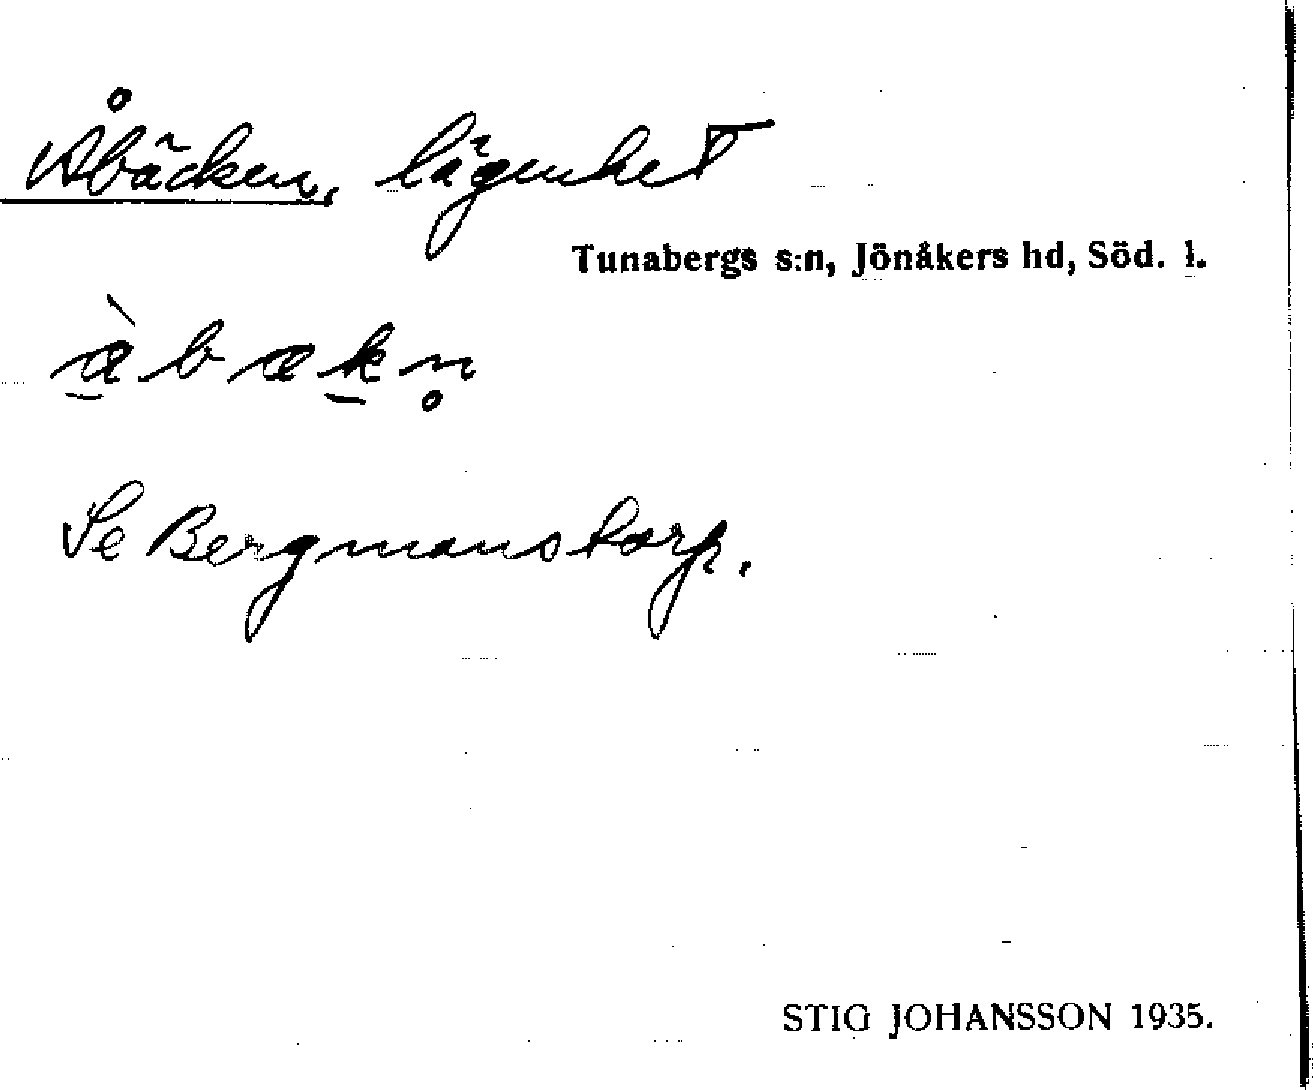 Åbäcken, lägenhet
Tunabergs s:n, Jönåkers hd, Söd. l.
Se Bergmanstorp.
STIG JOHANSSON 1935.